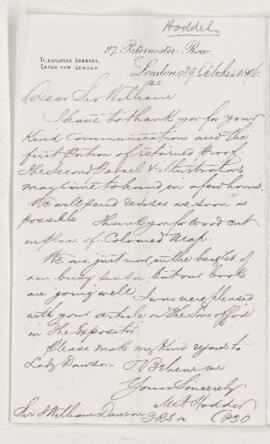 Hodder
27, Paternoster Row,
TELEGRAPHIC ADDRESS,
EXPOSITOR LONDON.
London, 29 October 18
E.C.
Dear Sir William
I have to thank you for your
kind communications and the
first portion of returned proof
The second Parcel & illustrations
may come to hand in a few hours.
We will send revises as soon as
possible. Thank you for wood cut
in place of Coloured Map.
We are just now in the height of
our busy season, but our books
are going well. I was very pleased
with your article on
in The Expositor
Please make my kind regards to
Lady Dawson & Believe me
Yours Sincerely
M H Hodder
Sir J William Dawson F.R.S.